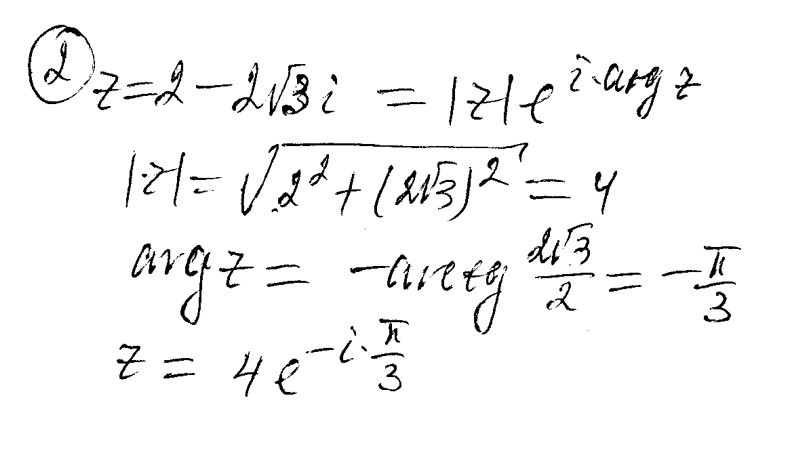 ② z = 2 - 2√3 i = |z| e^{i·arg z}
|z| = √(2² + (2√3)²) = 4
arg z = -arctg 2√3/2 = -π/3
z = 4e^{-i·π/3}